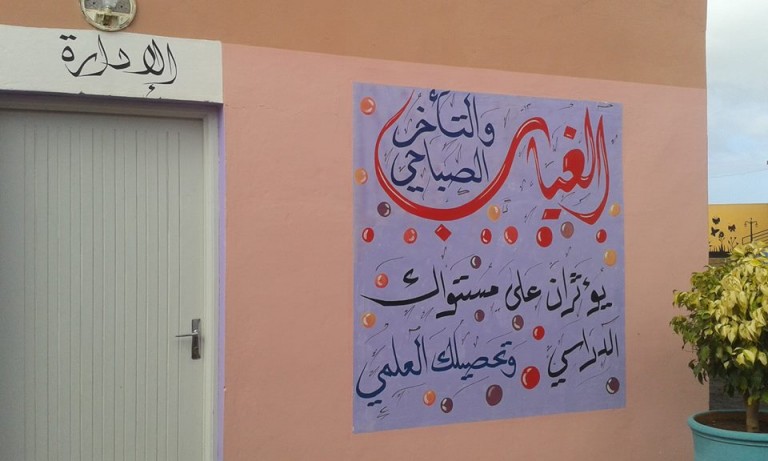 الإدارة
الغياب والتأخر
الصباحي
يؤثران على مستواك
الدراسي وتحصيلك العلمي